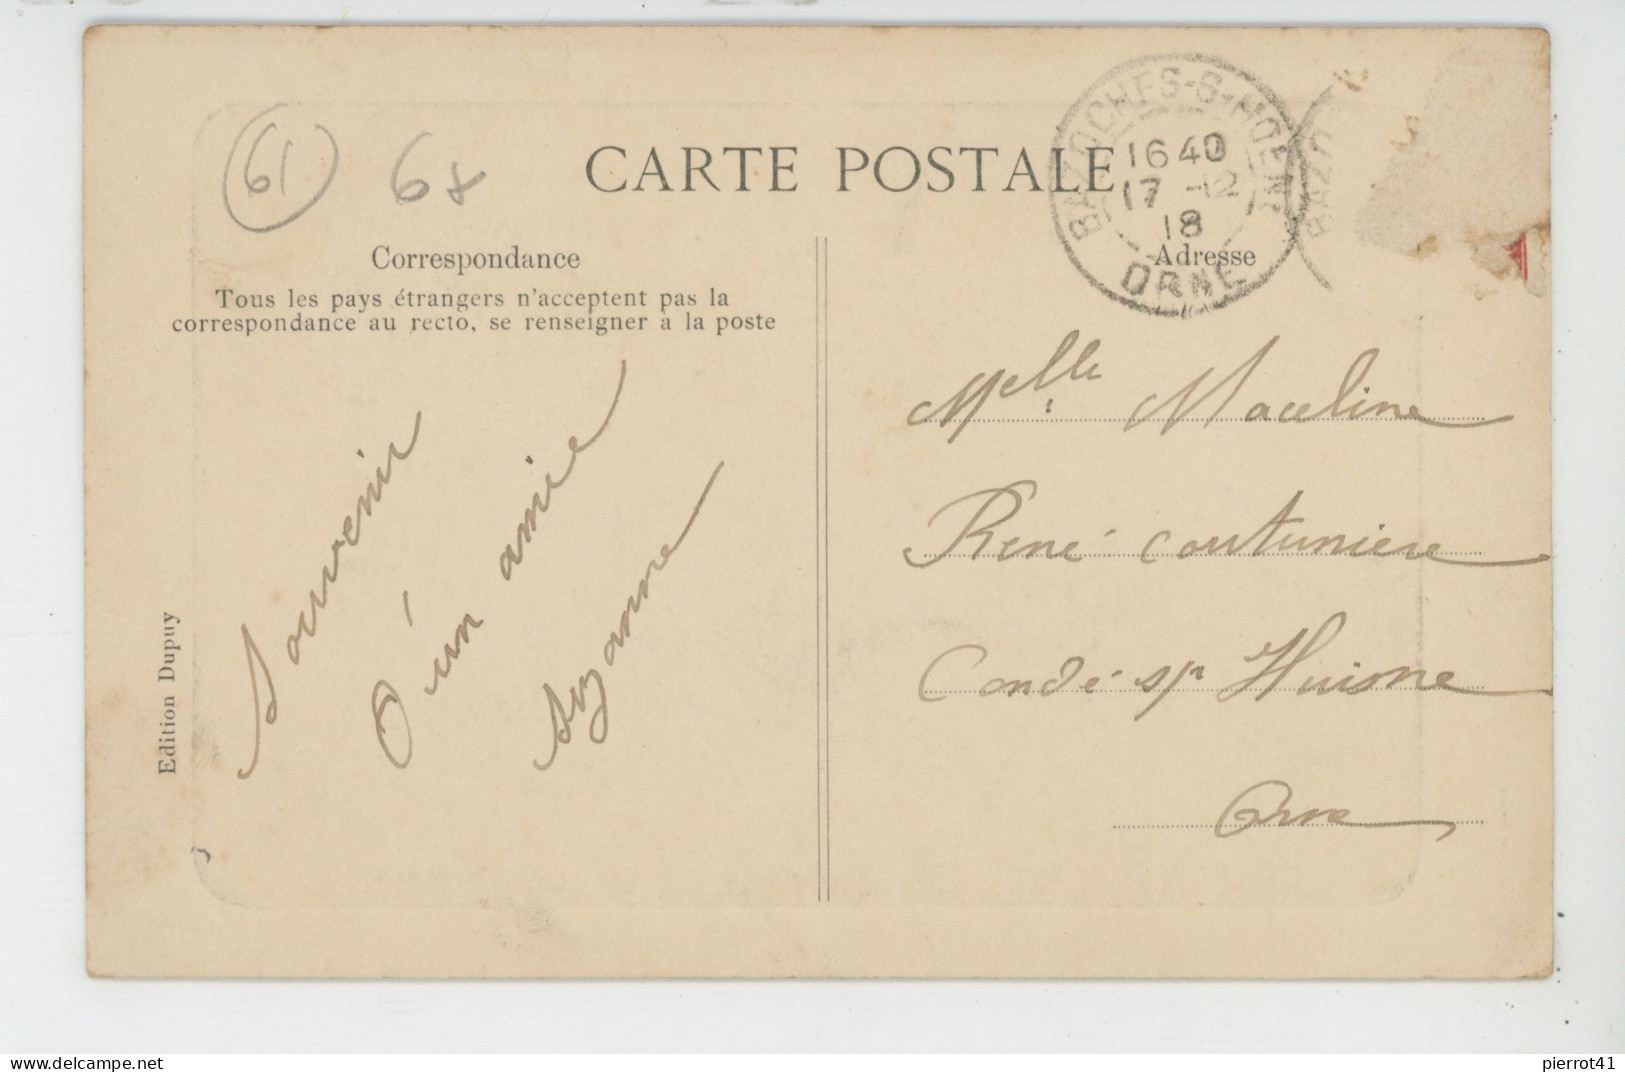 61
6x
CARTE POSTALE
BAZOCHES-S-HOËNE
1640
17 -12
18
ORNE
BAZO
Correspondance
Adresse
Tous les pays étrangers n'acceptent pas la
correspondance au recto, se renseigner à la poste
Souvenir
d'un amie
Suzanne
Melle Maceline
René couturière
Condé s/r Huisne
Orne
Edition Dupuy
www.delcampe.net
pierrot41